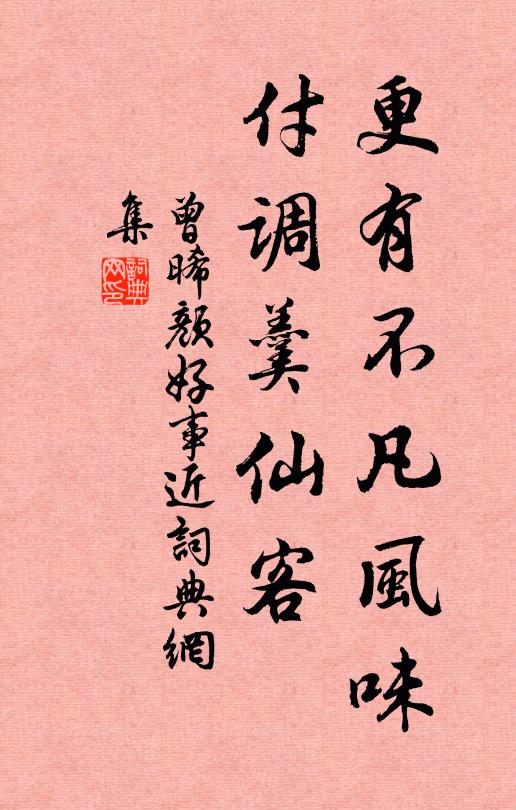 更有不凡風味
付調羹仙客
曾晞顏好事近詞典網
集
詞典
网印